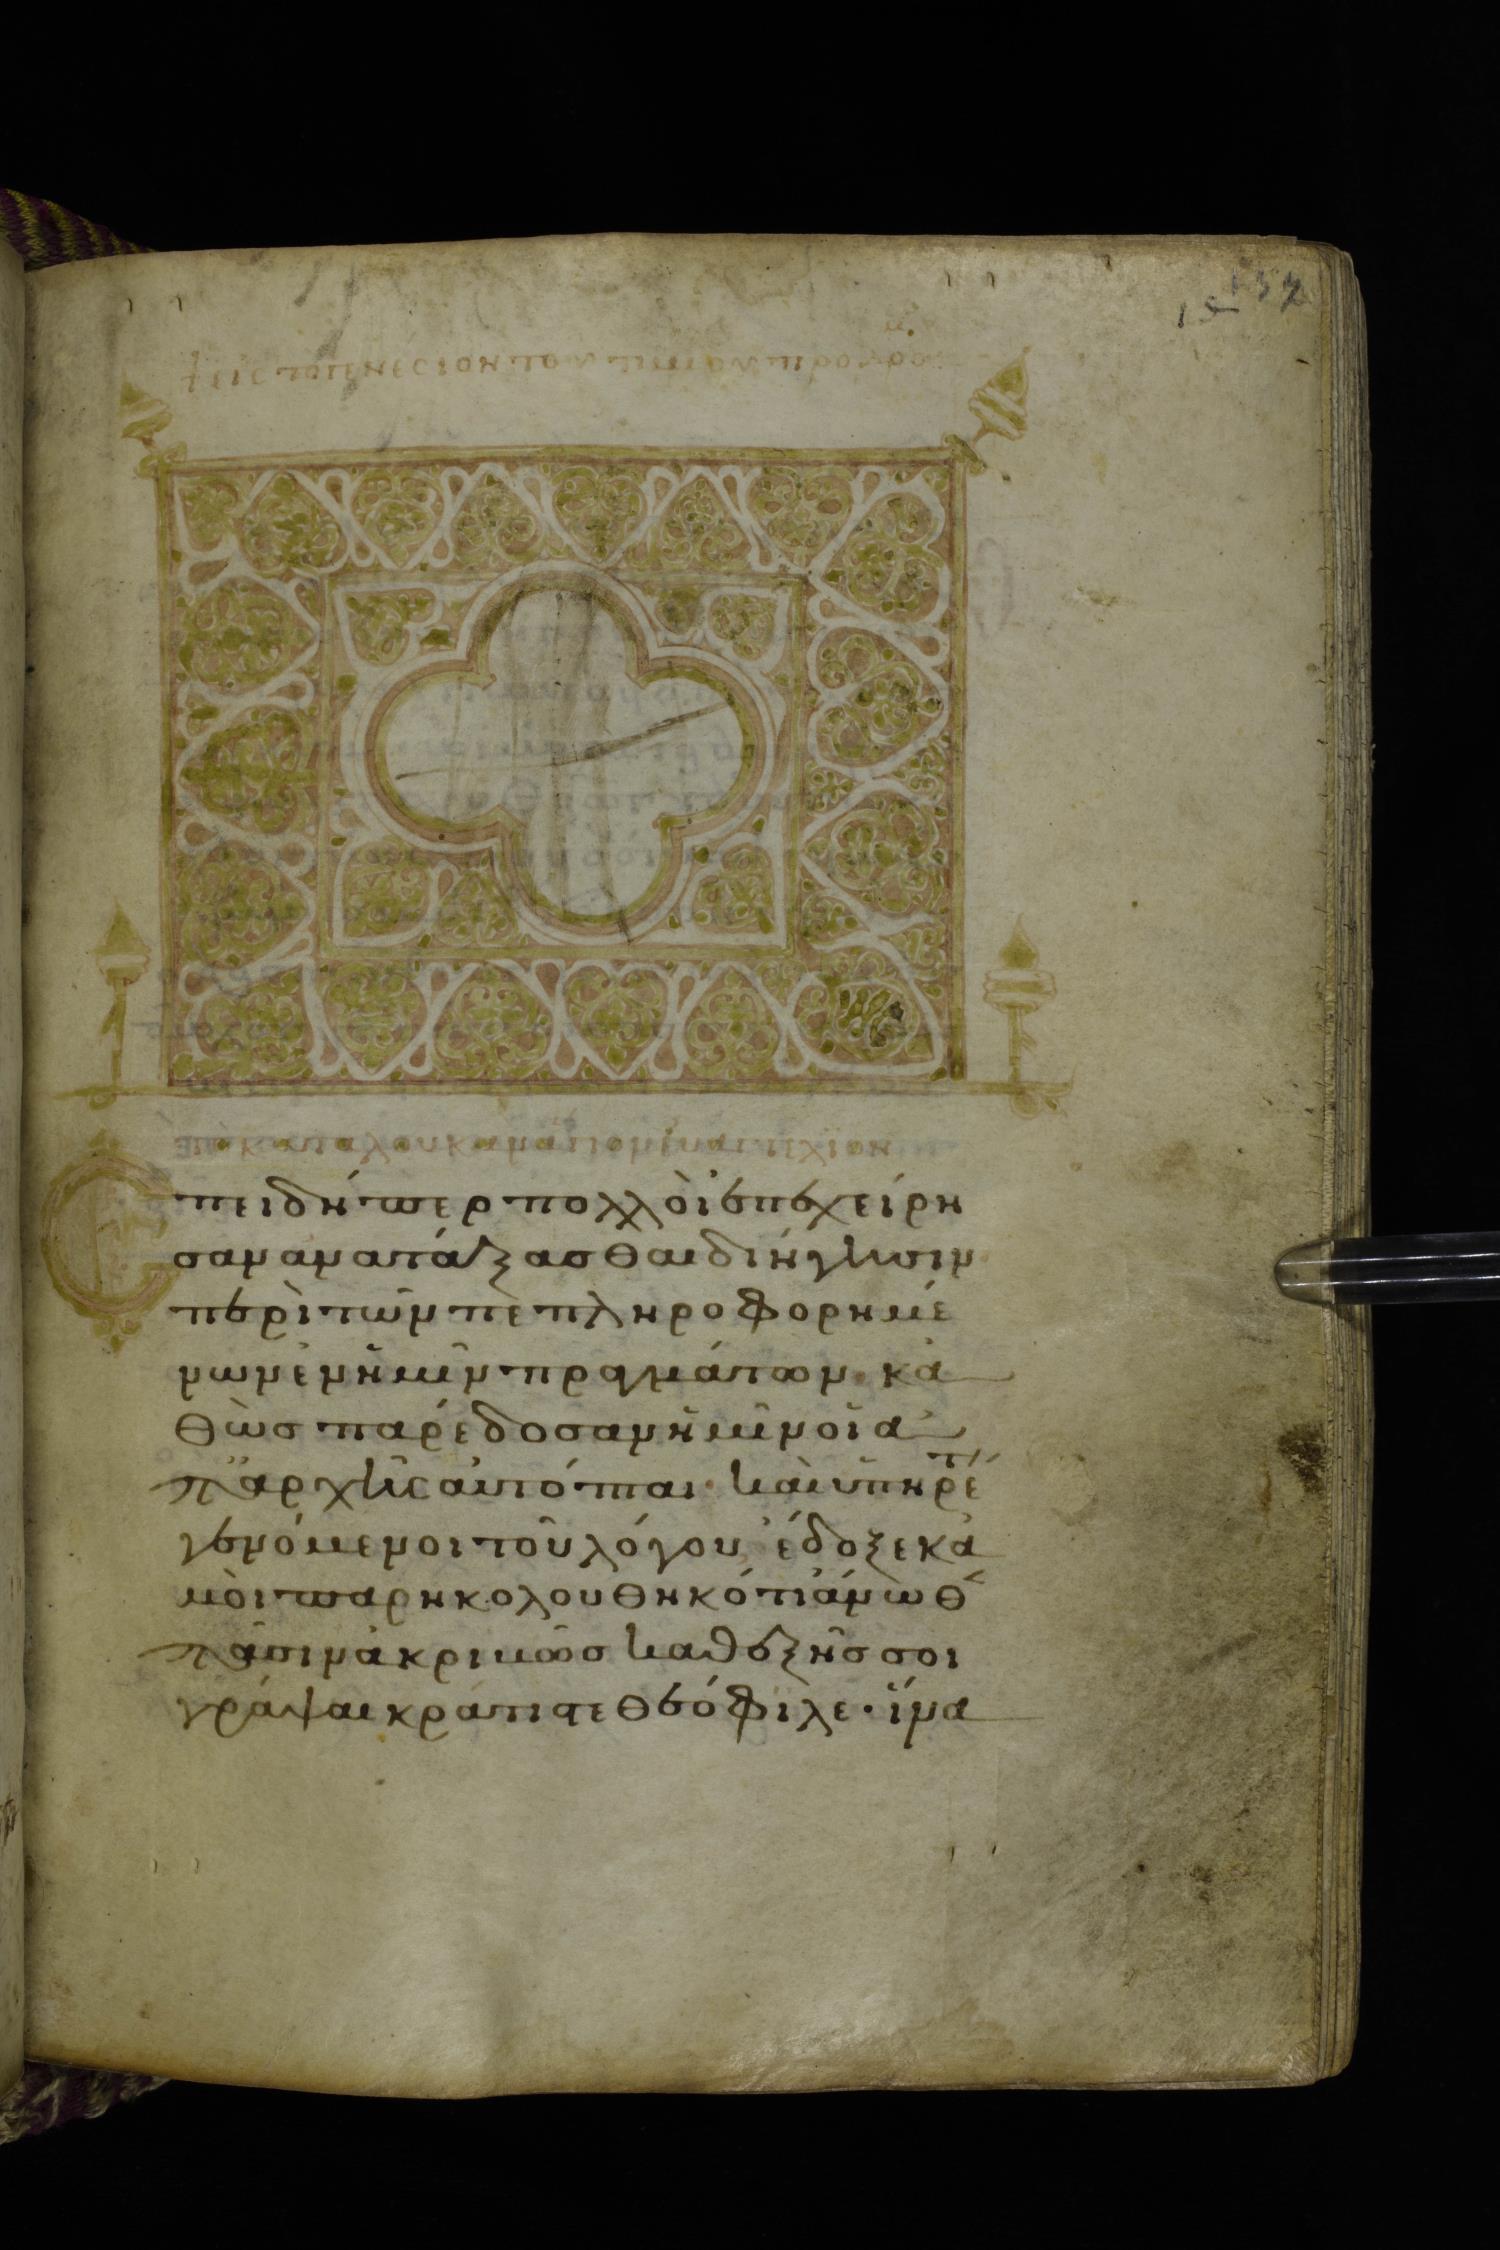 132
εἰς τὸ γενέσιον τοῦ τιμίου προδρό
ἐκ κατὰ λουκᾶν
Ἐπειδήπερ πολλοὶ ἐπεχείρη
σαν ἀνατάξασθαι διήγησιν
περὶ τῶν πεπληροφορημέ
νων ἐν ἡμῖν πραγμάτων· κα
θὼς παρέδοσαν ἡμῖν οἱ ἀ
π' ἀρχῆς αὐτόπται· καὶ ὑπηρέτ
γενόμενοι τοῦ λόγου ἔδοξε κἀ
μοὶ παρηκολουθηκότι ἄνωθ
πᾶσιν ἀκριβῶς καθεξῆς σοι
γράψαι κράτιστε θεόφιλε· ἵνα